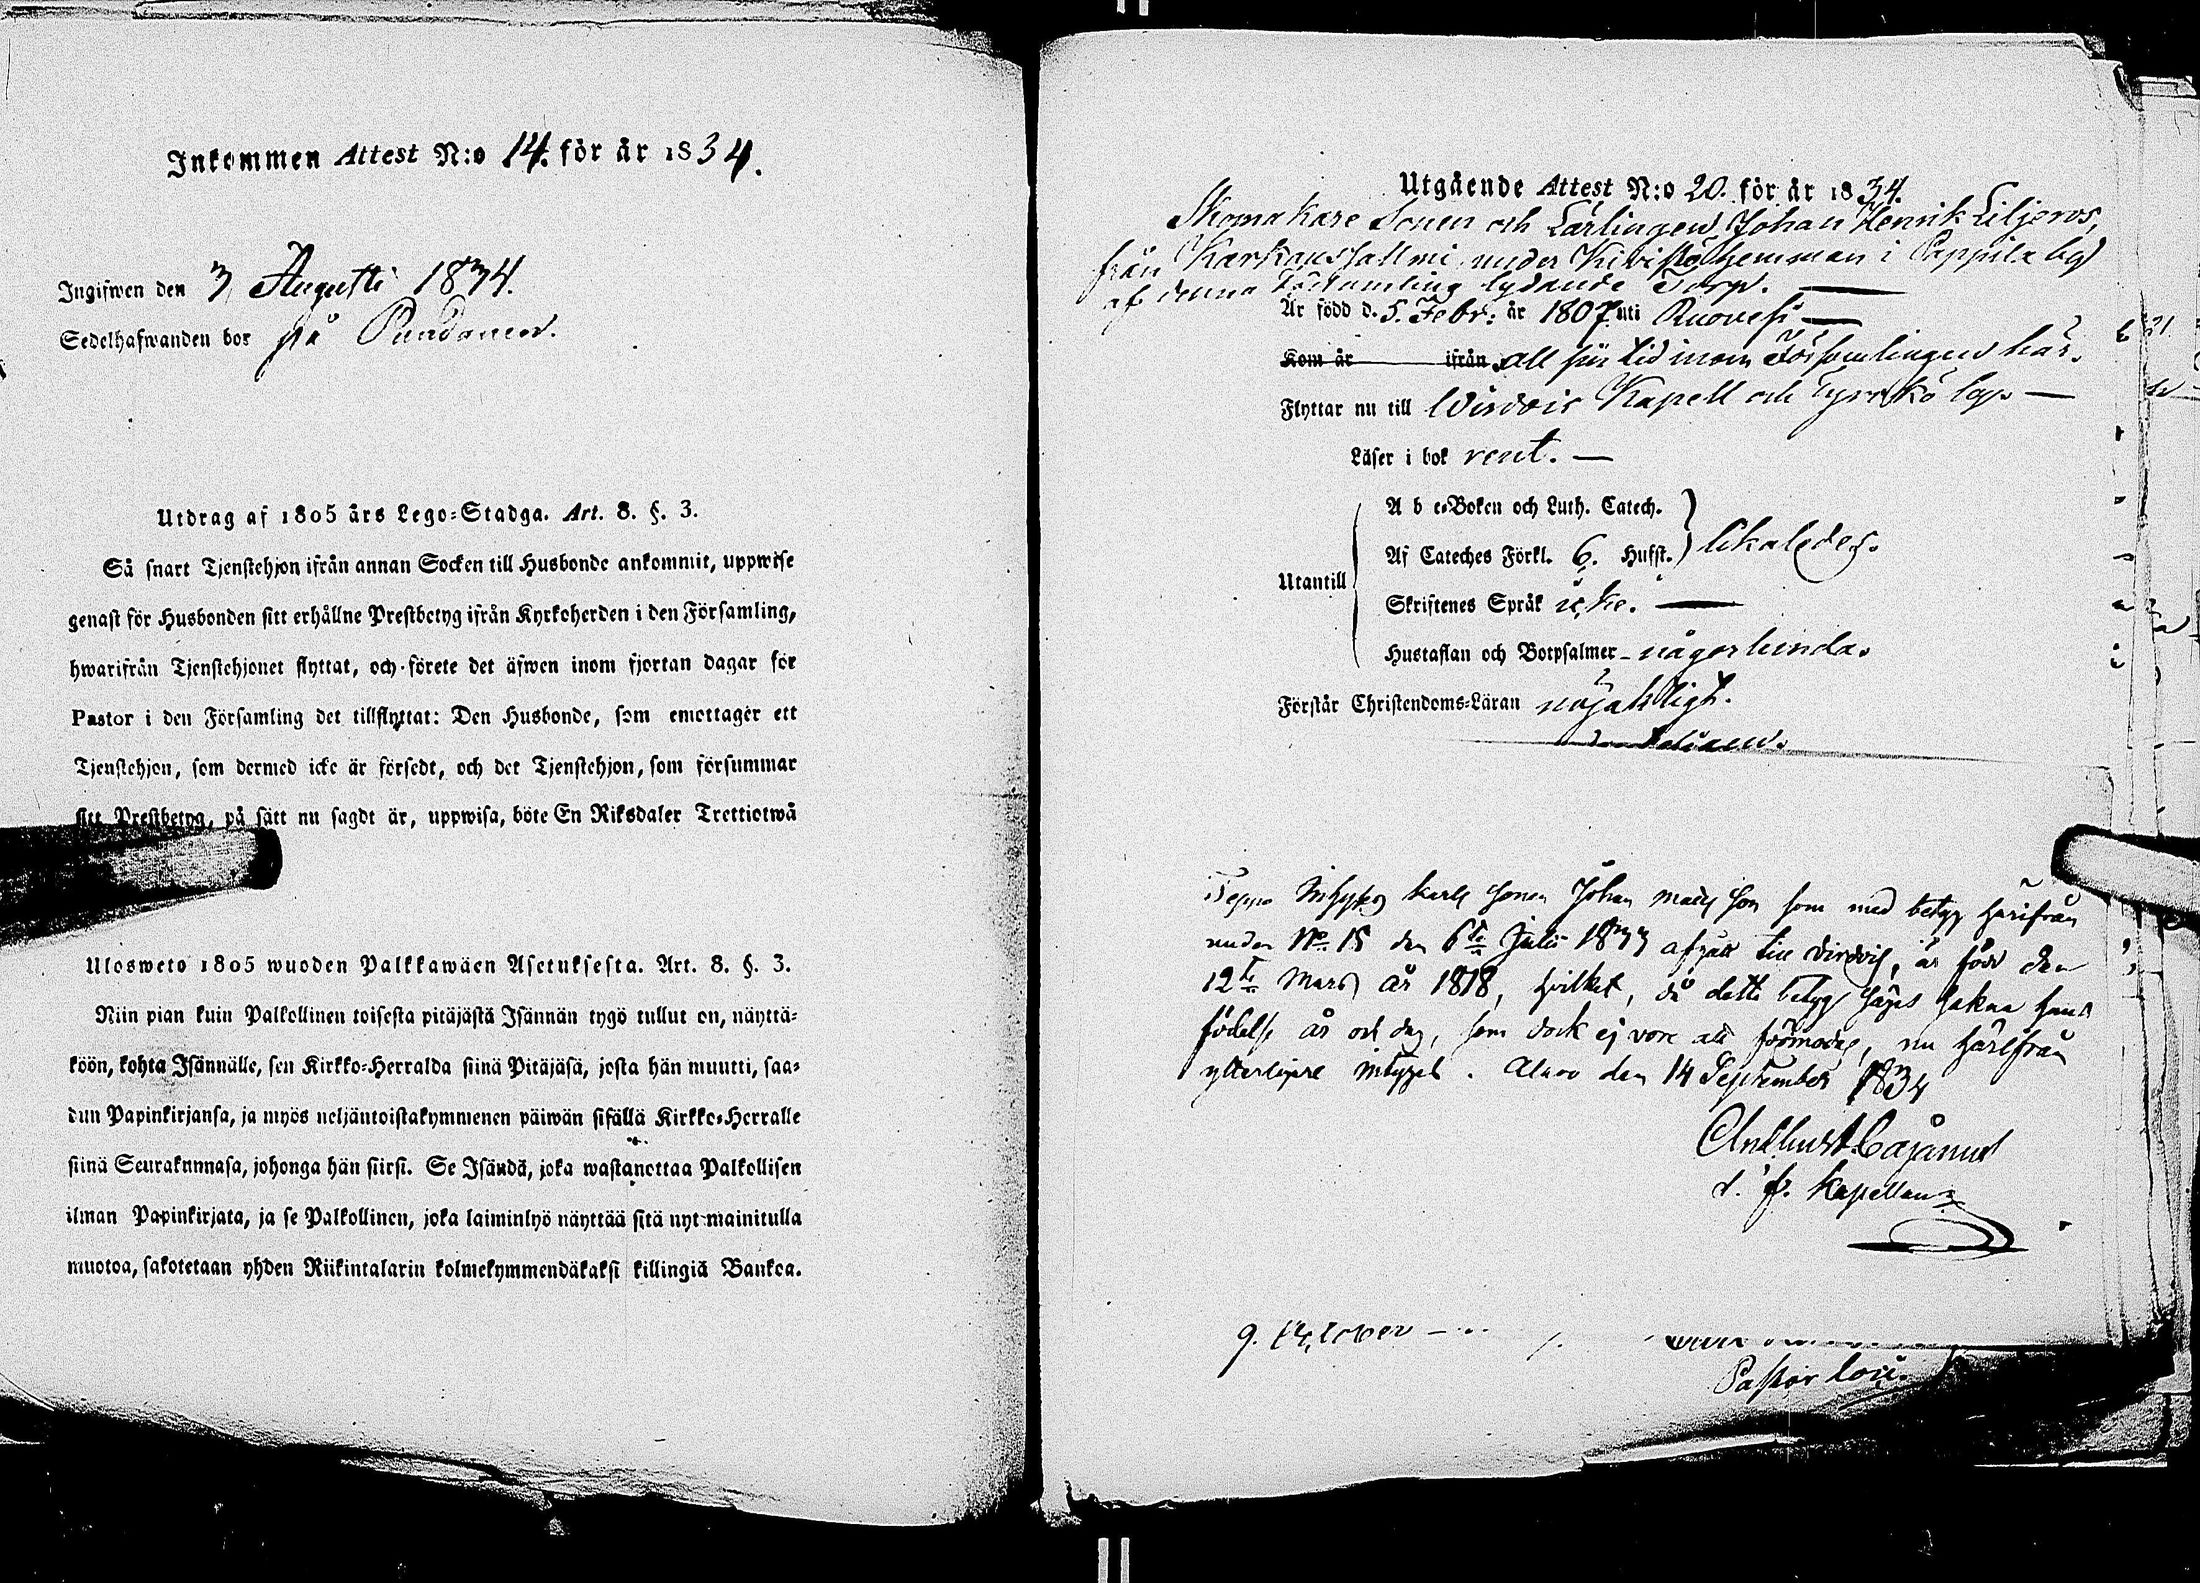 Inkommen Attest N:o 14. för år 1834.
Ingifwen den 3 Augusti 1834.
Sedelhafwanden bor på
Utdrag af 1805 års Lego-Stadga. Art. 8. §. 3.
Så snart Tjenstehjon ifrån annan Socken till Husbonde ankommit, uppwise
genast för Husbonden sitt erhållne Prestbetyg ifrån Kyrkoherden i den Församling,
hwarifrån Tjenstehjonet flyttat, och förete det äfwen inom fjortan dagar för
Pastor i den Församling det tillflyttat: Den Husbonde, som emottager ett
Tjenstehjon, som dermed icke är försedt, och det Tjenstehjon, som försummar
sitt Prestbetyg, på sätt nu sagdt är, uppwisa, böte En Riksdaler Trettiotwå
Ulosweto 1805 wuoden Palkkawäen Asetuksesta. Art. 8. §. 3.
Niin pian kuin Palkollinen toisesta pitäjästä Isännän tygö tullut on, näyttä-
köön, kohta Isännälle, sen Kirkko-Herralda siinä Pitäjäsä, josta hän muutti, saa-
dun Papinkirjansa, ja myös neljäntoistakymmenen päiwän sisällä Kirkko-Herralle
siinä Seurakunnasa, johonga hän siirsi. Se Isändä, joka wastanottaa Palkollisen
ilman Papinkirjata, ja se Palkollinen, joka laiminlyö näyttää sitä nyt mainitulla
muotoa, sakotetaan yhden Riikintalarin kolmekymmendäkaksi killingiä Bankoa.
Utgående Attest N:o 20. för år 1834.
Skomakare Sonen och Lärlingen Johan Henrik Liljeros,
från Karkaussallmi under Kivistö hemman i Pappila by
af denna Församling lydande Torp.
Är född d. 5. Febr: år 1807. uti Ruovesi
Kom år ifrån all sin tid inom Församlingen här.
Flyttar nu till Wirdois Kapell och by.
Läser i bok rent.
A b c-Boken och Luth. Catech.
Af Cateches Förkl. 6. Hufst. likaledes.
Utantill
Skriftenes Språk icke.
Hustaflan och Botpsalmer någorlunda.
Förstår Christendoms-Läran nöjaktligt.
karls sonen Johan Mads son som med betyg härifrån
under No 15 den 6te Julii 1833 afgått till Virdois, är född den
12te Mars år 1818, hvilket, då detta betyg säges sakna hans
födelse år och dag, som dock ej vore att förmoda, nu härifrån
ytterligare intygas. Alavo den 14 September 1834
Cajanus
v. p. Kapellan
9. October
Pastor loci.